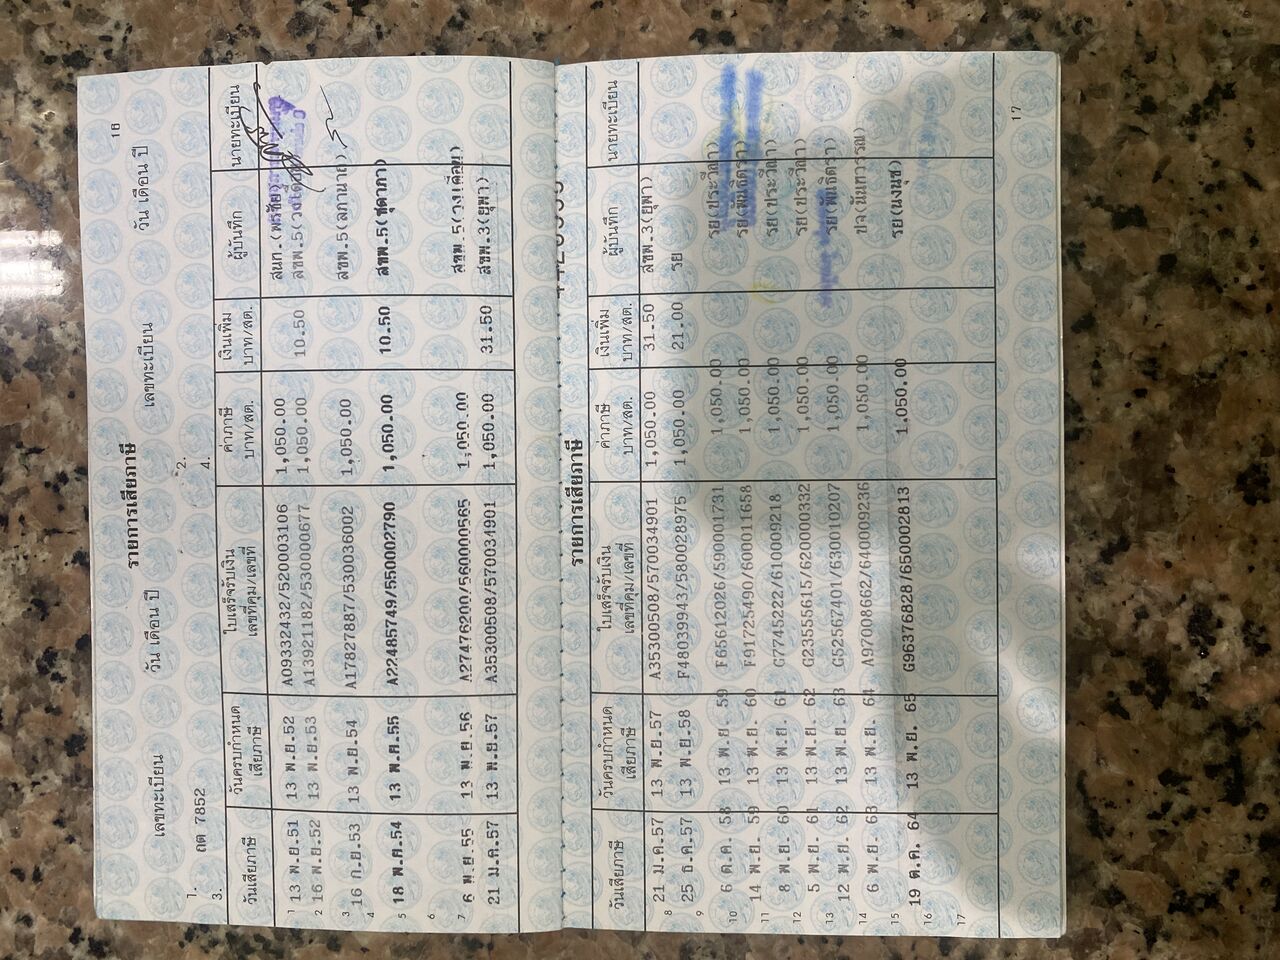 16
รายการเสียภาษี
เลขทะเบียน วัน เดือน ปี เลขทะเบียน วัน เดือน ปี
1. ถต 7852 2.
3. 4.
วันเสียภาษี วันครบกำหนดเสียภาษี ใบเสร็จรับเงิน เลขที่คุม/เลขที่ ค่าภาษี บาท/สต. เงินเพิ่ม บาท/สต. ผู้บันทึก นายทะเบียน
1 13 พ.ย.51 13 พ.ย.52 A09332432/520003106 1,050.00
2 16 พ.ย.52 13 พ.ย.53 A13921182/530000677 1,050.00 10.50
3 16 ก.ย.53 13 พ.ย.54 A17827887/530036002 1,050.00 สขพ.5(ลภานาย)
4
5 18 พ.ย.54 13 พ.ย.55 A22485749/550002790 1,050.00 10.50 สขพ.5(ชุดาภา)
6
7 6 พ.ย.55 13 พ.ย.56 A27476200/560000565 1,050.00 สขพ.5(วงเดือน)
21 ม.ค.57 13 พ.ย.57 A35300508/570034901 1,050.00 31.50 สขพ.3(ยุพา)
รายการเสียภาษี
วันเสียภาษี วันครบกำหนดเสียภาษี ใบเสร็จรับเงิน เลขที่คุม/เลขที่ ค่าภาษี บาท/สต. เงินเพิ่ม บาท/สต. ผู้บันทึก นายทะเบียน
21 ม.ค.57 13 พ.ย.57 A35300508/570034901 1,050.00 31.50 สขพ.3(ยุพา)
8 25 ธ.ค.57 13 พ.ย.58 F48039943/580028975 1,050.00 21.00 รย
9
10 6 ต.ค. 58 13 พ.ย. 59 F65612026/590001731 1,050.00 รย(ประวีณา)
11 14 พ.ย. 59 13 พ.ย. 60 F91725490/600011658 1,050.00 รย(พันธิตรา)
12 8 พ.ย. 60 13 พ.ย. 61 G7745222/610009218 1,050.00 รย(ประวีณา)
13 5 พ.ย. 61 13 พ.ย. 62 G23555615/620000332 1,050.00 รย(ประวีณา)
14 12 พ.ย. 62 13 พ.ย. 63 G52567401/630010207 1,050.00 รย(พันธิตรา)
15 6 พ.ย. 63 13 พ.ย. 64 A97008662/640009236 1,050.00 ปจ(นันทวรรณ)
16 19 ต.ค. 64 13 พ.ย. 65 G96376828/650002813 1,050.00 รย(นงนุช)
17
17